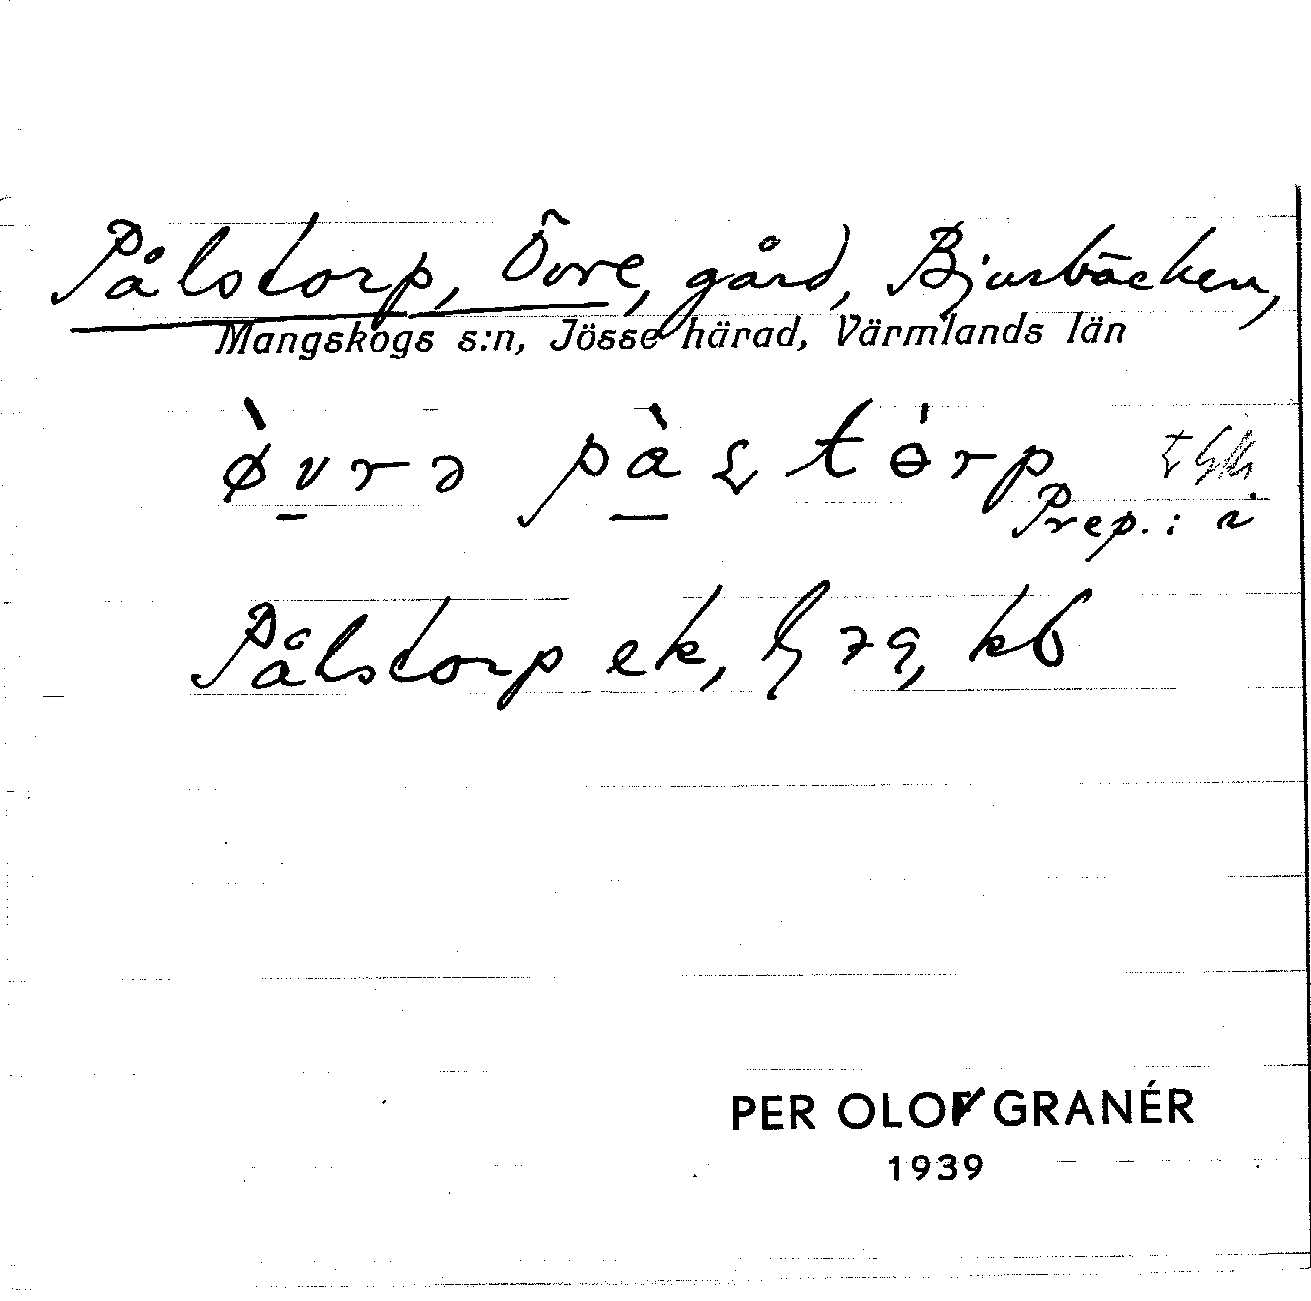 Pålstorp, Övre, gård, Bjurbäcken,
Mangskogs s:n, Jösse härad, Värmlands län
ø̀vrə pàʂtɵ́rp
Prep.: i
Pålstorp ek, kb
PER OLOV GRANÉR
1939